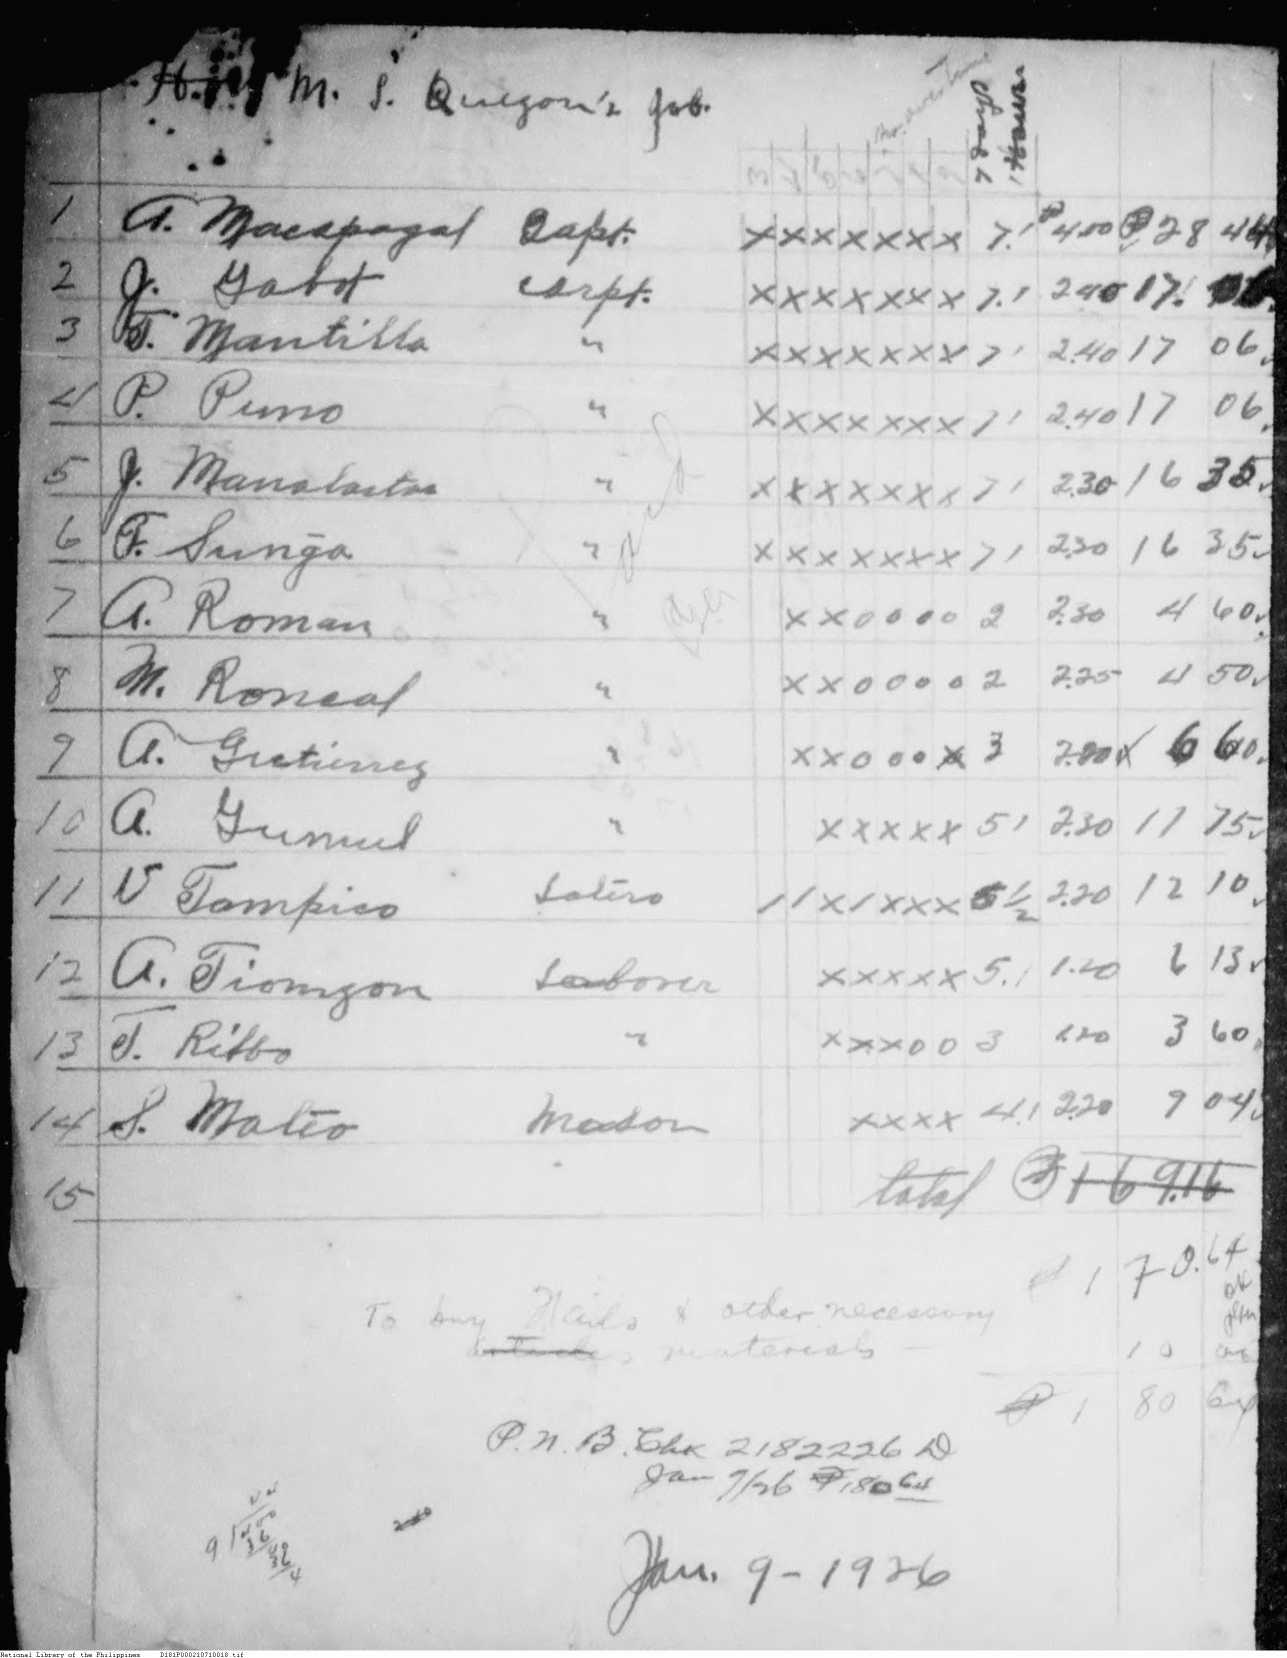 Hon. M. S. Quezon's Job.
7 days
1 Hour
1 A. Macapagal Capt. xxxxxxx 7.1 ₱4.00 ₱28 44
2 J. Gabot carpt. xxxxxxx 7.1 2.40 17. 06
3 T. Mantilla " xxxxxxx 7 1 2.40 17 06
4 P. Puno " xxxxxxx 7 1 2.40 17 06
5 J. Manalastas " xxxxxxx 7 1 2.30 16 35
6 F. Sunga " xxxxxxx 7 1 2.30 16 35
7 A. Roman " xxoooo 2 2.30 4 60
8 M. Roncal " xxoooo 2 2.25 4 50
9 A. Gutierrez " xxooox 3 2.20 6 60
10 A. Gumul " xxxxx 5 1 2.30 11 75
11 V Tampico Latero / / x / xxx 5 1/2 2.20 12 10
12 A. Tiomgon Laborer xxxxx 5.1 1.20 6 13
13 T. Ribbo " xxxoo 3 1.20 3 60
14 S. Mateo Mason xxxx 4.1 2.20 9 04
15 total ₱169.16
₱ 1 70.64
OK
To buy Nails & other necessary
articles materials — 10 00
₱ 1 80 64
P.N.B. Chk 2182226 D
Jan 9/26 ₱180 64
Jan. 9 - 1926
National Library of the Philippines D181P000210710018.tif